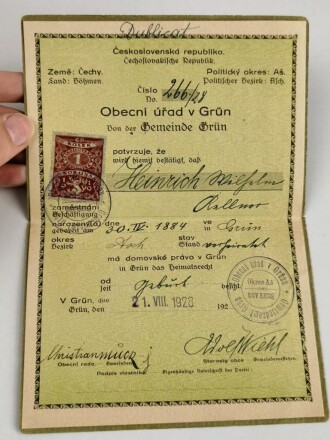 Dublicat
Československá republika.
Čechoslovakische Republik.
Země: Čechy. Politický okres: Aš.
Land: Böhmen. Politischer Bezirk: Asch.
Číslo
No. 266/28
Obecní úřad v Grün
Von der Gemeinde Grün
potvrzuje, že
wird hiemit bestätigt, daß
Heinrich Wilhelm
Kellner
zaměstnání
Beschäftigung
narozen(a) dne 30. IV. 1884 v Grün
geboren am in
okres Asch stav verheiratet
Bezirk Stand
má domovské právo v Grün
in Grün das Heimatsrecht
od Geburt
seit besitzt
V Grün, dne 21. VIII. 1928 192
Grün, den
Adolf Wiehl
Obecní rada. Gemeinderat. Starosty obce Gemeindevorsteher.
Podpis vlastníka. Eigenhändige Unterschrift der Partei